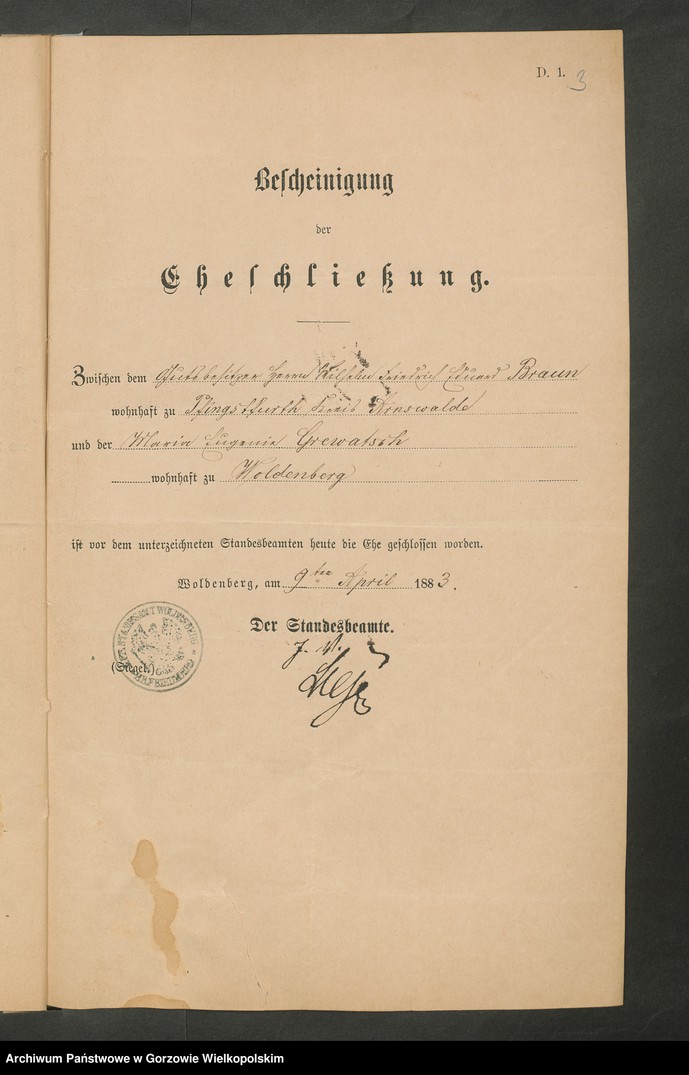 D. 1.
3
Bescheinigung
der
Eheschließung.
Zwischen dem Gutsbesitzer Herrn Wilhelm Friedrich Eduard Braun
wohnhaft zu Pfingstfurth Kreis Arnswalde
und der Maria Eugenie Grewatsch
wohnhaft zu Woldenberg
ist vor dem unterzeichneten Standesbeamten heute die Ehe geschlossen worden.
Woldenberg, am 9ten April 1883.
Der Standesbeamte.
J. V.
(Siegel.)
Archiwum Państwowe w Gorzowie Wielkopolskim